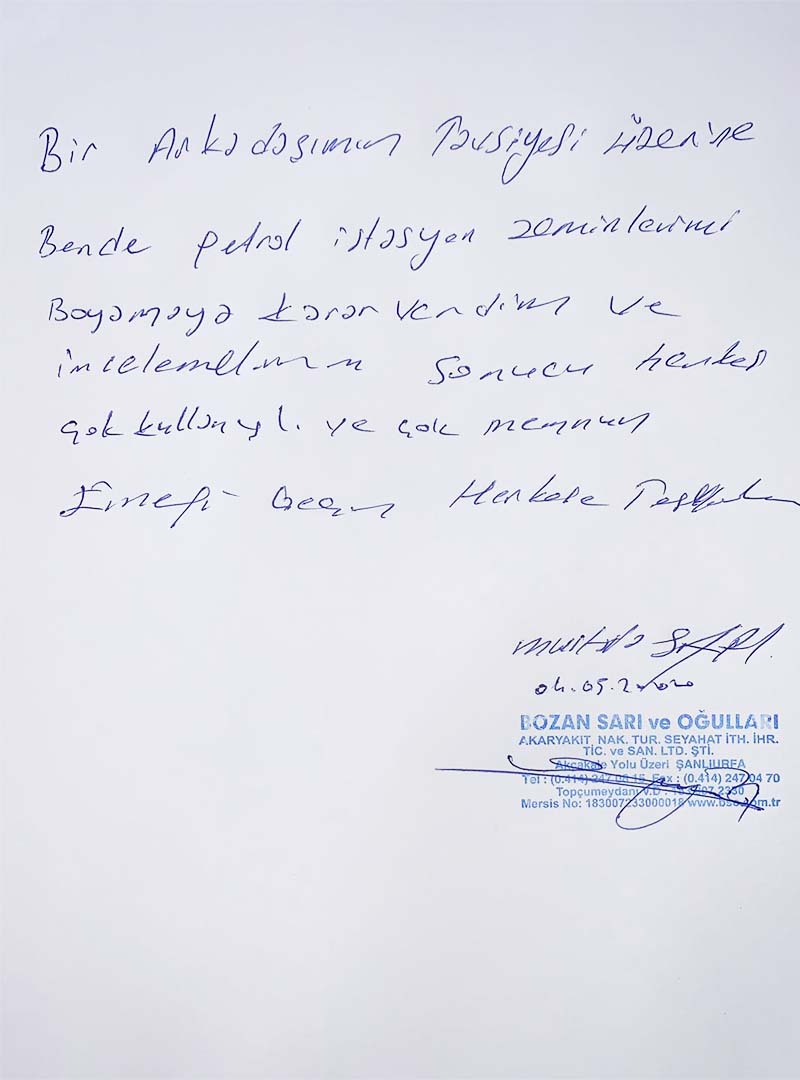 Bir Arkadaşımın Tavsiyesi üzerine
Bende petrol istasyon zeminlerimi
Boyamaya karar verdim ve
incelemelerimin sonucu herkes
çok kullanışlı ve çok memnun
Emeği Geçen Herkese
Mustafa SARI
04.05.2020
BOZAN SARI ve OĞULLARI
AKARYAKIT NAK. TUR. SEYAHAT İTH. İHR.
TİC. ve SAN. LTD. ŞTİ.
Akçakale Yolu Üzeri ŞANLIURFA
Tel : (0.414) 247 Fax : (0.414) 247 04 70
Topçumeydanı V.D : 2330
Mersis No: